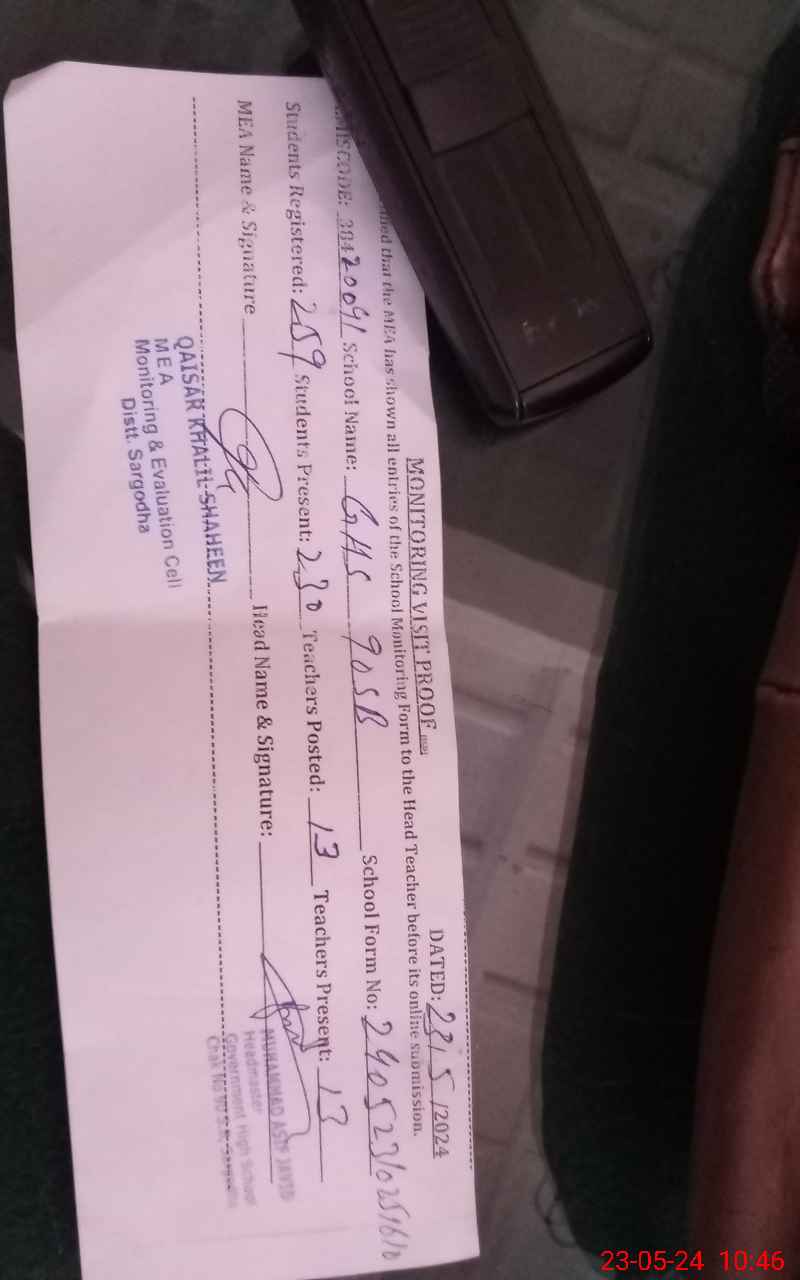 MONITORING VISIT PROOF
DATED: 23/5/2024
that the MEA has shown all entries of the School Monitoring Form to the Head Teacher before its online submission.
EMISCODE: 38420091 School Name: GHS 90SB School Form No: 240523102516
Students Registered: 259 Students Present: 230 Teachers Posted: 13 Teachers Present: 13
MEA Name & Signature Head Name & Signature:
QAISAR KHALIL SHAHEEN
MEA
Monitoring & Evaluation Cell
Distt. Sargodha
MUHAMMAD ASIF JAVED
Headmaster
Government High School
Chak No 90 S.B, Sargodha
23-05-24 10:46